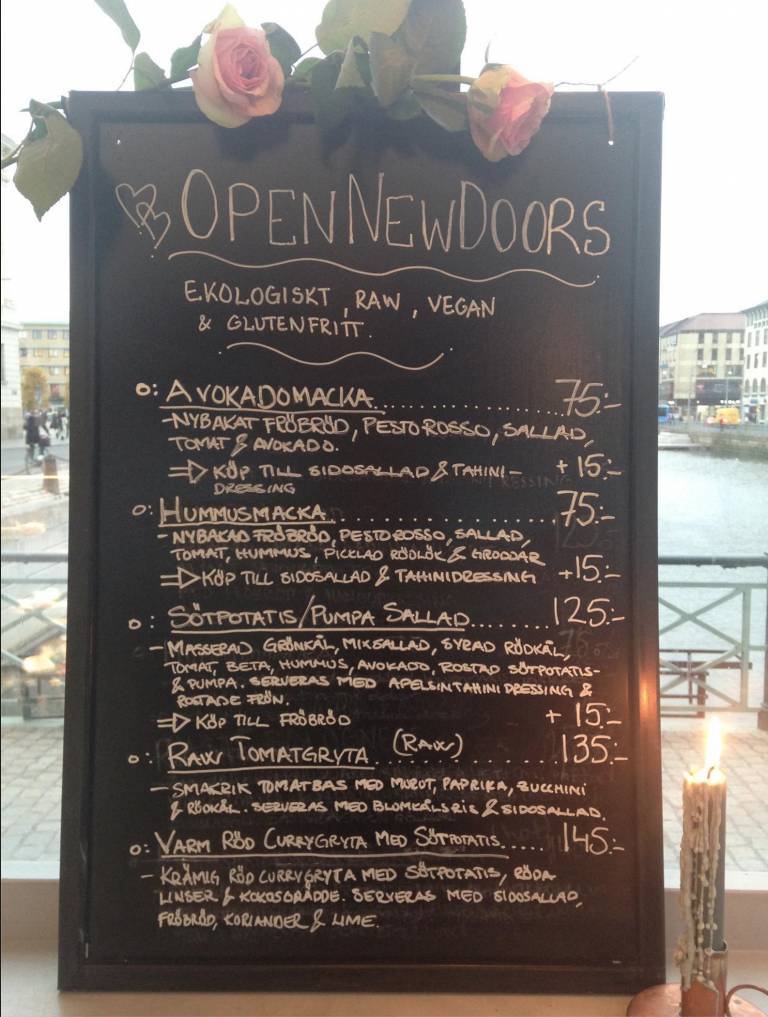 OPENNEWDOORS
EKOLOGISKT, RAW, VEGAN
& GLUTENFRITT.
o: AVOKADOMACKA................75:-
-NYBAKAT FRÖBRÖD, PESTO ROSSO, SALLAD,
TOMAT & AVOKADO.
⇒ KÖP TILL SIDOSALLAD & TAHINI- +15:-
DRESSING
o: HUMMUSMACKA................75:-
-NYBAKAD FRÖBRÖD, PESTO ROSSO, SALLAD,
TOMAT, HUMMUS, PICKLAD RÖDLÖK & GRODDAR
⇒ KÖP TILL SIDOSALLAD & TAHINIDRESSING +15:-
o: SÖTPOTATIS/PUMPA SALLAD.......125:-
- MASSERAD GRÖNKÅL, MIXSALLAD, SYRAD RÖDKÅL,
TOMAT, BETA, HUMMUS, AVOKADO, ROSTAD SÖTPOTATIS-
& PUMPA. SERVERAS MED APELSINTAHINI DRESSING &
ROSTADE FRÖN.
⇒ KÖP TILL FRÖBRÖD + 15:-
o: RAW TOMATGRYTA (RAW) 135:-
- SMAKRIK TOMATBAS MED MOROT, PAPRIKA, ZUCCHINI
& RÖDKÅL. SERVERAS MED BLOMKÅLSRIS & SIDOSALLAD.
o: VARM RÖD CURRYGRYTA MED SÖTPOTATIS..... 145:-
- KRÄMIG RÖD CURRYGRYTA MED SÖTPOTATIS, RÖDA-
LINSER & KOKOSGRÄDDE. SERVERAS MED SIDOSALLAD,
FRÖBRÖD, KORIANDER & LIME.